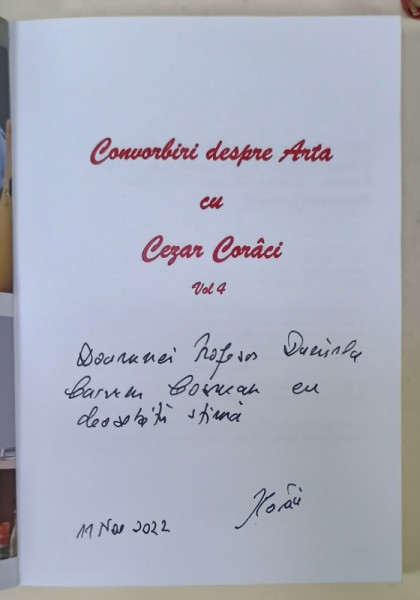 Convorbiri despre Arta
cu
Cezar Corâci
Vol 4
Doamnei Profesor
Carmen Cosman cu
deosebită stimă
11 Noe 2022